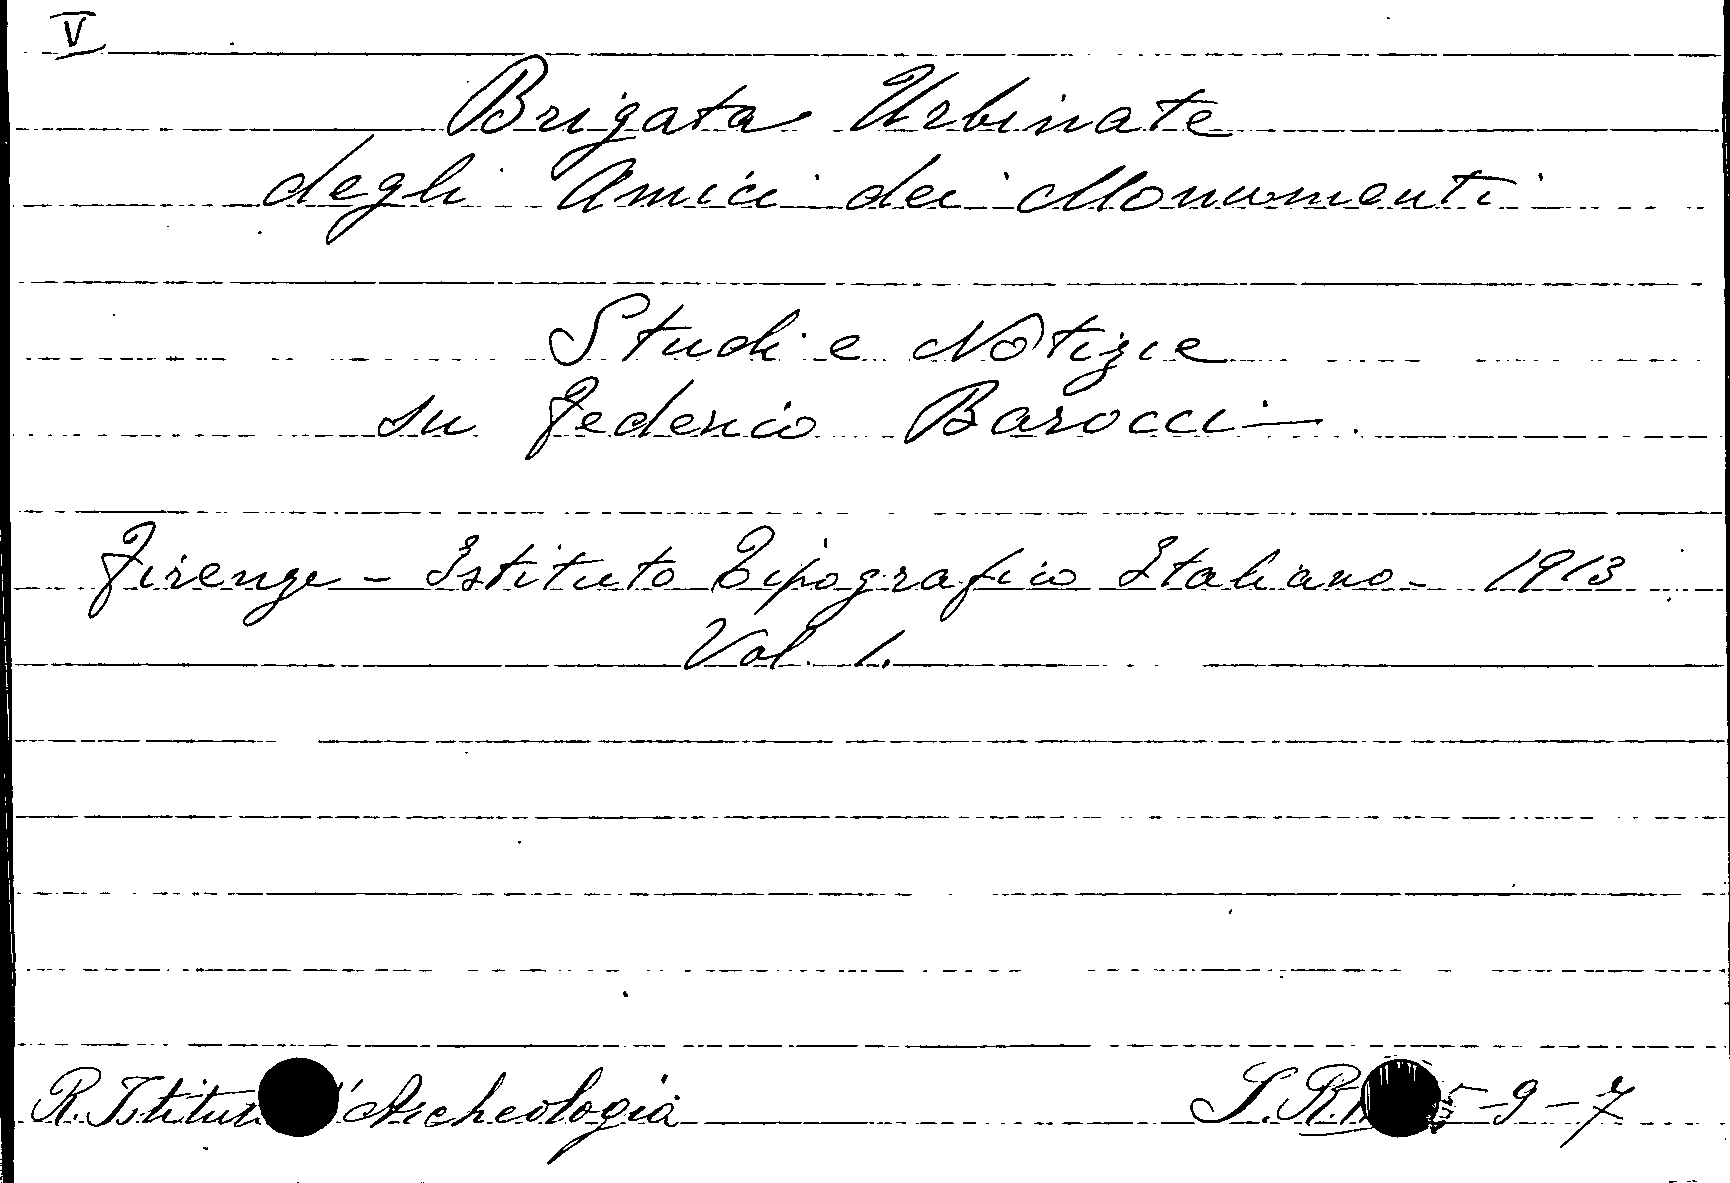 V
Brigata Urbinate
degli Amici dei Monumenti
Studi e Notizie
su Federico Barocci
Firenze - Istituto Tipografico Italiano - 1913
Vol. 1.
R. Istitut 'Archeologia
S.R. 5-9-7